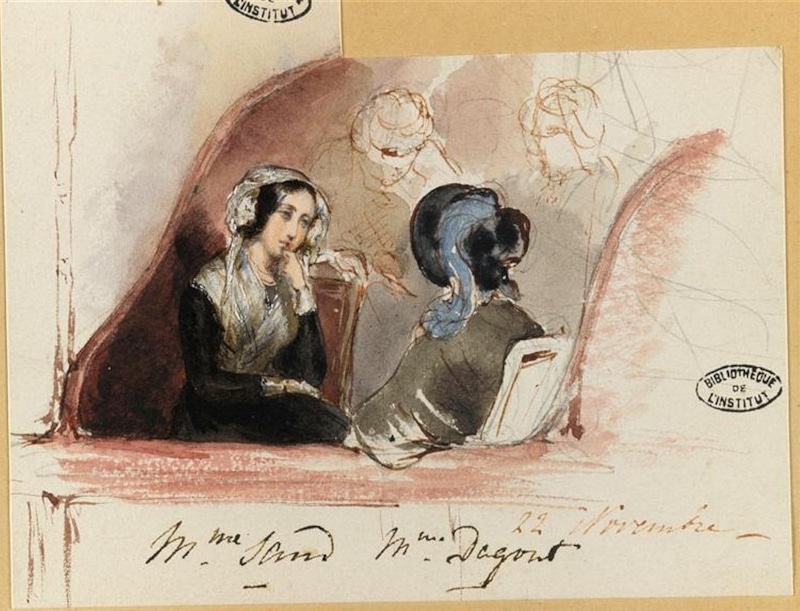 DE
L'INSTITUT
BIBLIOTHÈQUE
DE
L'INSTITUT
22 Novembre
Mme Sand Mme Dagout